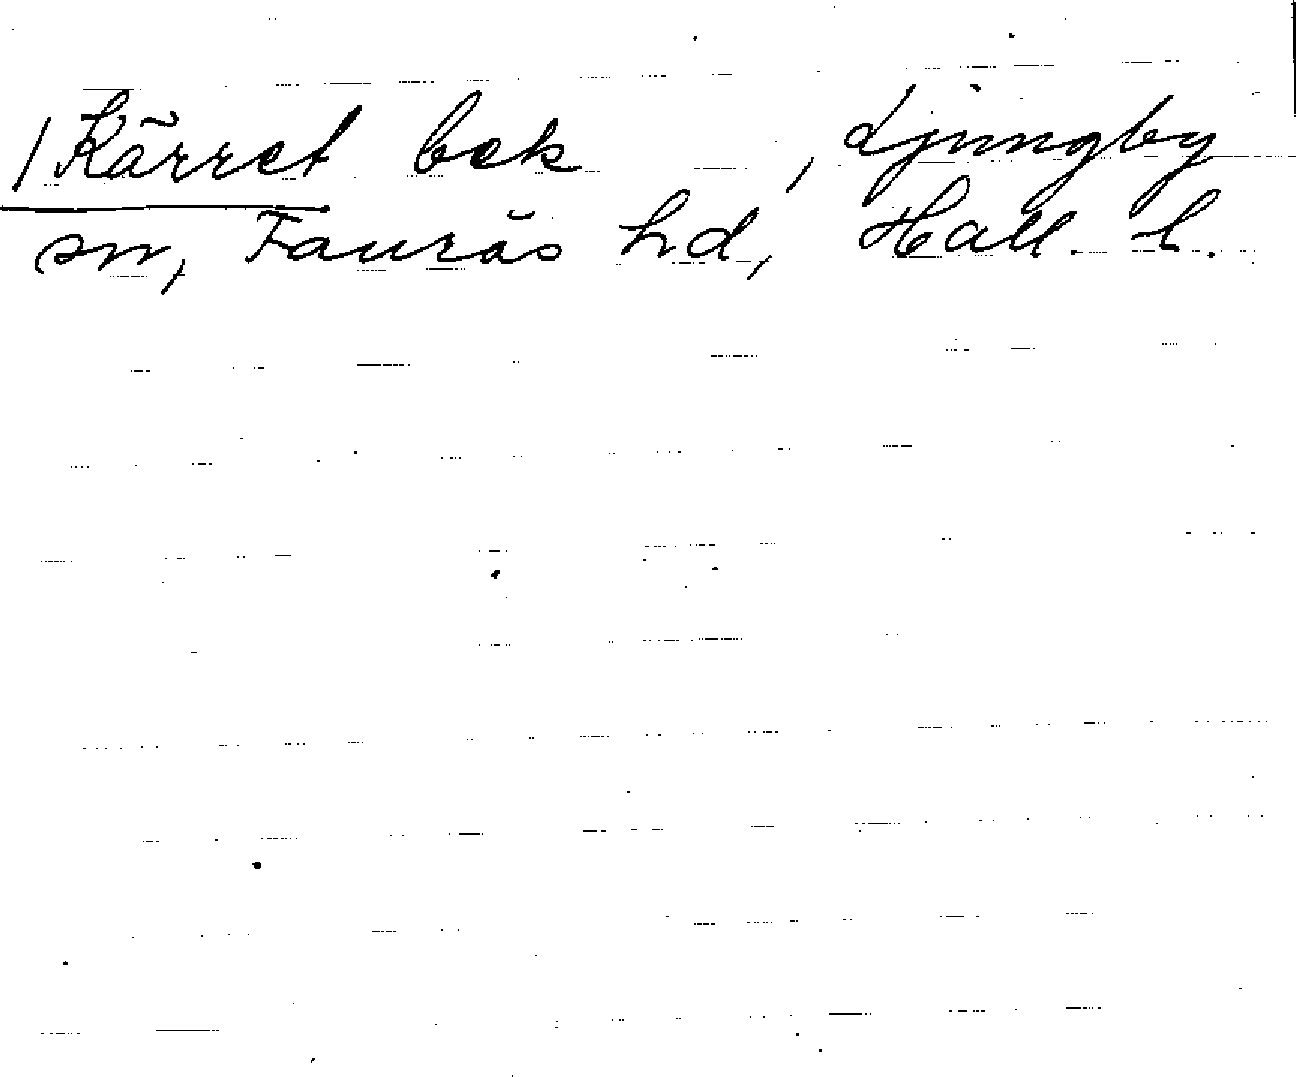 /Kärret bek , Ljungby
sn, Faurås hd, Hall. l.